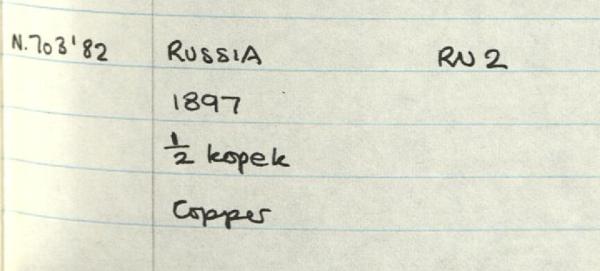 N.703'82 RUSSIA RN 2
1897
½ kopek
Copper